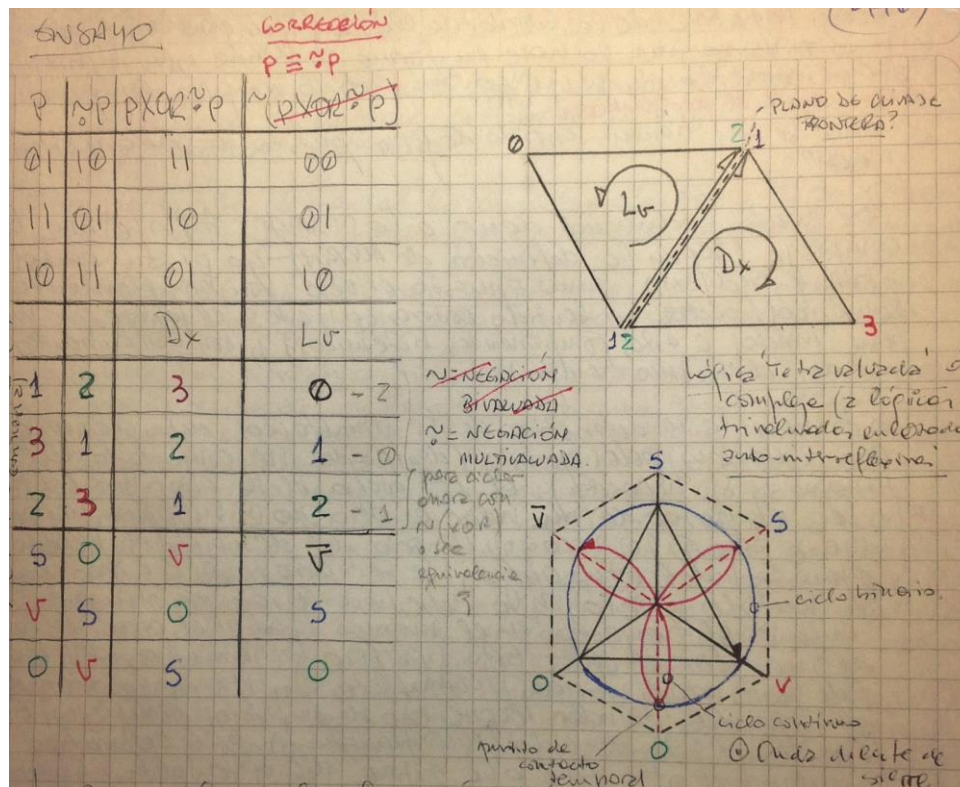 ENSAYO
CORRECCIÓN
P ≡ ~̈P
P | ~̈P | PXOR~̈P | ~(PXOR~̈P)
01 | 10 | 11 | 00
11 | 01 | 10 | 01
10 | 11 | 01 | 10
Dx | Lv
1 | 2 | 3 | 0 - 2
3 | 1 | 2 | 1 - 0
2 | 3 | 1 | 2 - 1
S | O | V | V̅
V | S | O | S
O | V | S | O
~=NEGACIÓN
BIVALUADA
~̈= NEGACIÓN
MULTIVALUADA.
para ciclar
ahora con
~(XOR)
o sea
equivalencia
PLANO DE
FRONTERA?
0
2 1
Lv
Dx
1 2
3
Lógica Tetravaluada
compleja (2 lógicas
trivaluadas
S
V̅
S
ciclo binario.
O
V
ciclo continuo
O
punto de
contacto
temporal
diente de